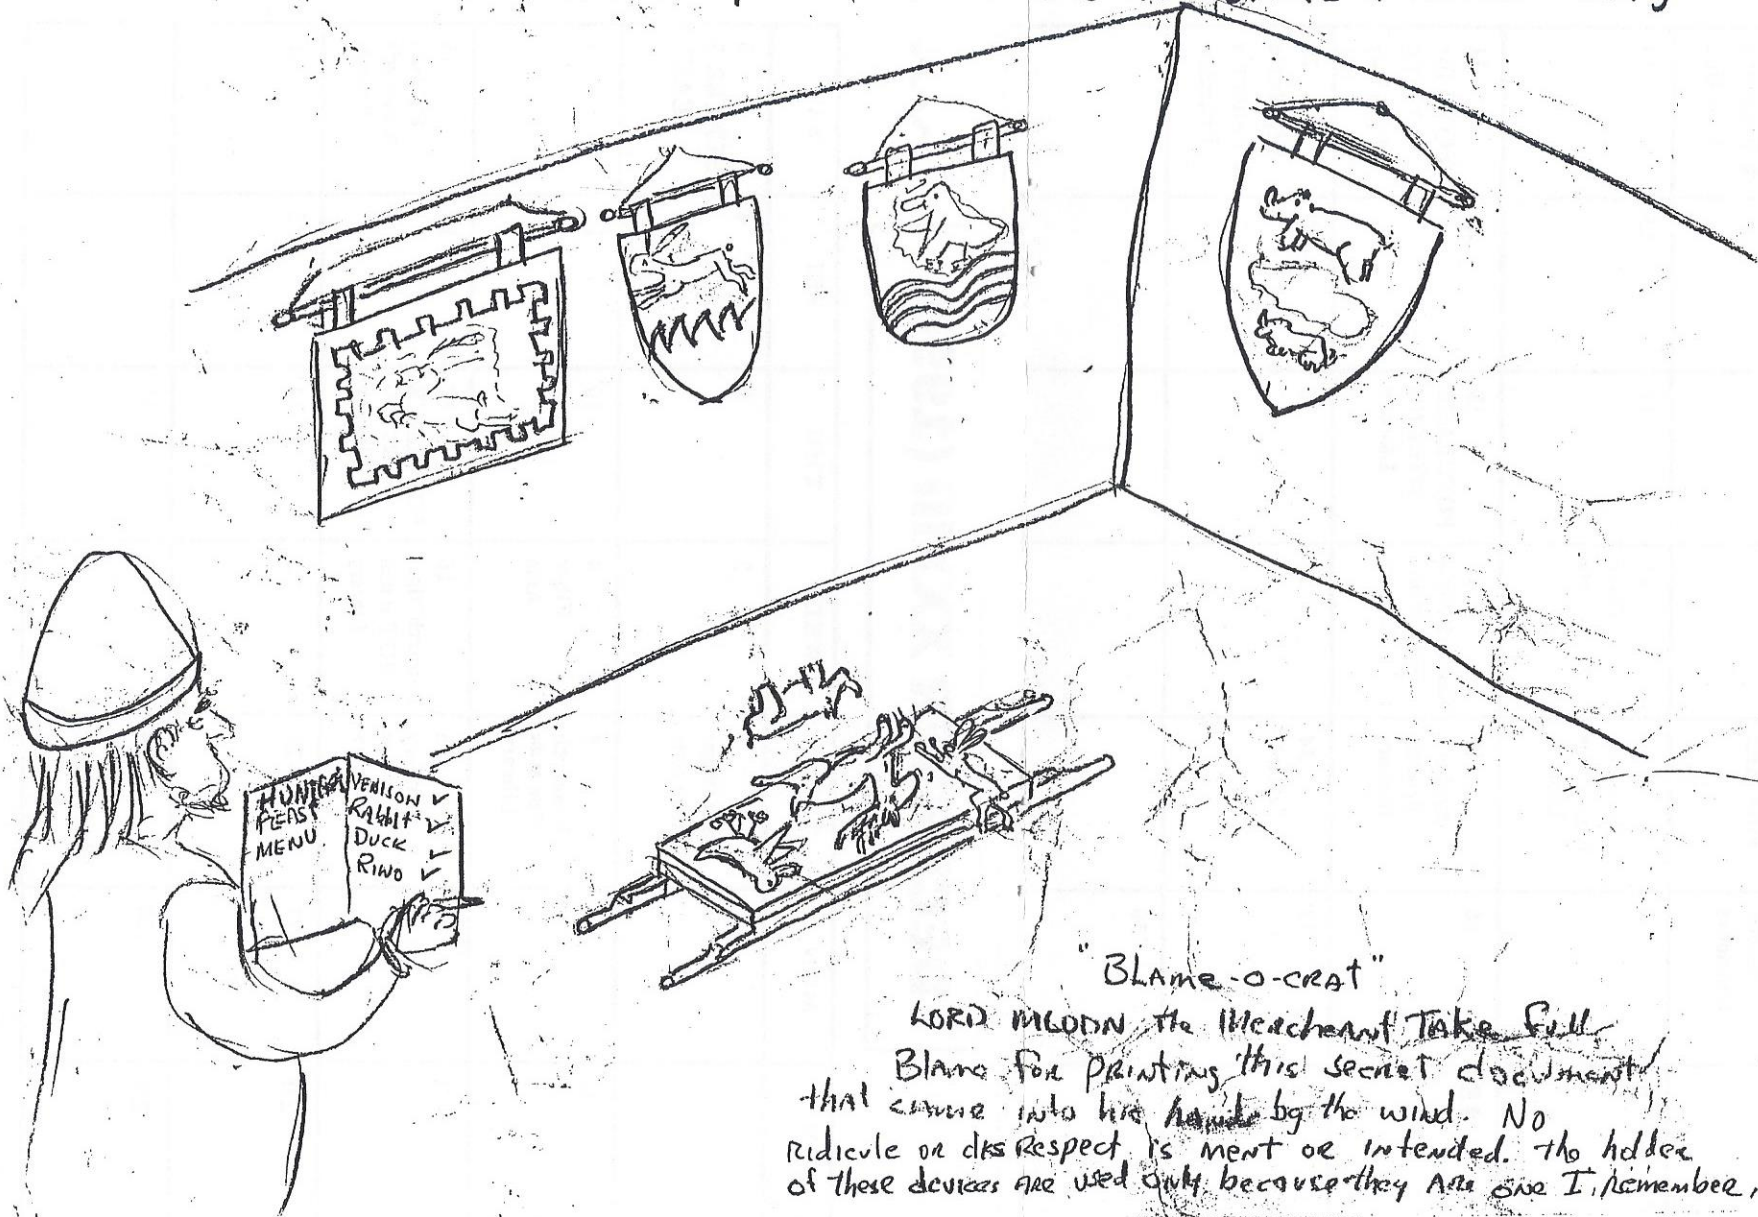 HUNTER
FEAST
MENU
VENISON ✓
RABBIT ✓
DUCK ✓
RINO ✓
"BLAme-o-CRAT"
LORD MLODN the Merchant TAKE full
BLAME for PRINTING this secret document
that came into his hands by the wind. No
Ridicule or disRespect is ment or intended. the holder
of these devices are used only because they are one I remember,